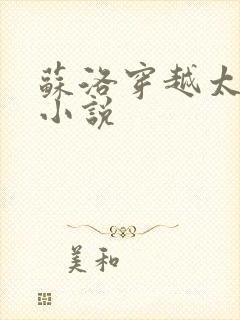 蘇洛穿越太
小說
美和